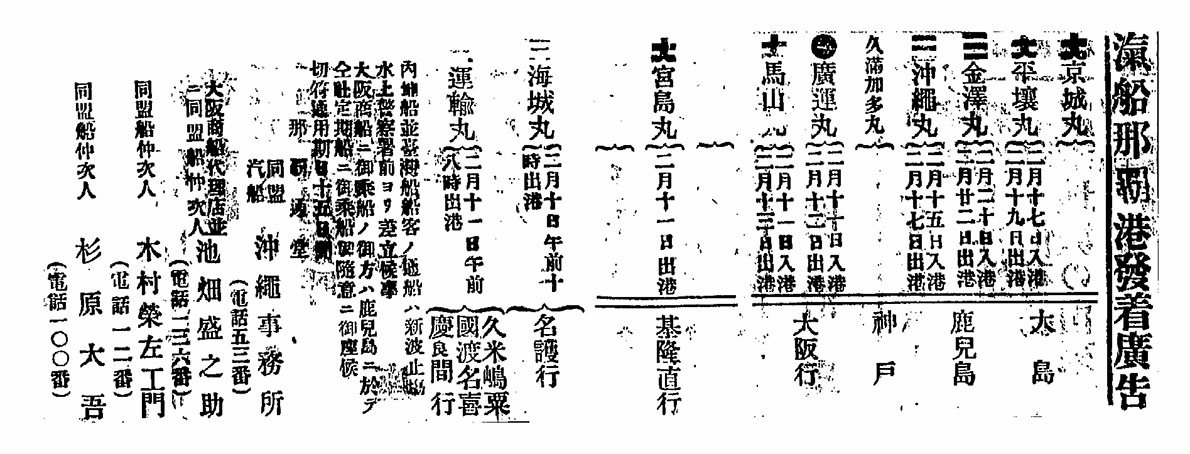 滊船那覇港發着廣告
京城丸
平壤丸 二月十七日入港 二月十九日出港
金澤丸 二月二十日入港 二月廿二日出港
沖繩丸 二月十五日入港 二月十七日出港
久滿加多丸
廣運丸 二月十日入港 二月十二日出港
馬山丸 二月十一日入港 二月十三日出港
大島
鹿兒島
神戸
大阪行
宮島丸 二月十一日出港
基隆直行
海城丸 二月十日午前十時出港
名護行
運輸丸 二月十一日午前八時出港
久米嶋粟國渡名喜慶良間行
内地船並臺灣船船客ノ
水上警察署前ヨリ
大阪商船ニ御乘船ノ御方ハ鹿兒島ニ於テ
仝社定期船ニ御乘船御隨意ニ御座候
切符通用期日十五日間
那覇通堂
同盟汽船 沖繩事務所
(電話五三番)
大阪商船代理店並ニ同盟船仲次人 池畑盛之助
(電話一三六番)
同盟船仲次人 木村榮左工門
(電話一二番)
同盟船仲次人 杉原大吾
(電話一〇〇番)